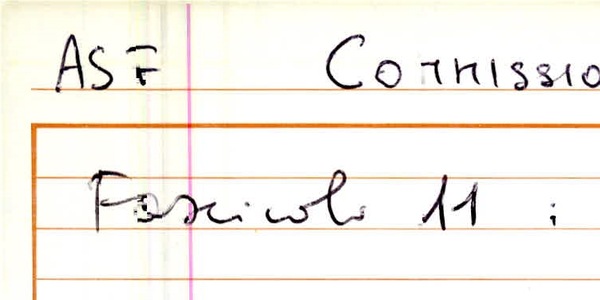 ASF Commissio
Fascicolo 11 :